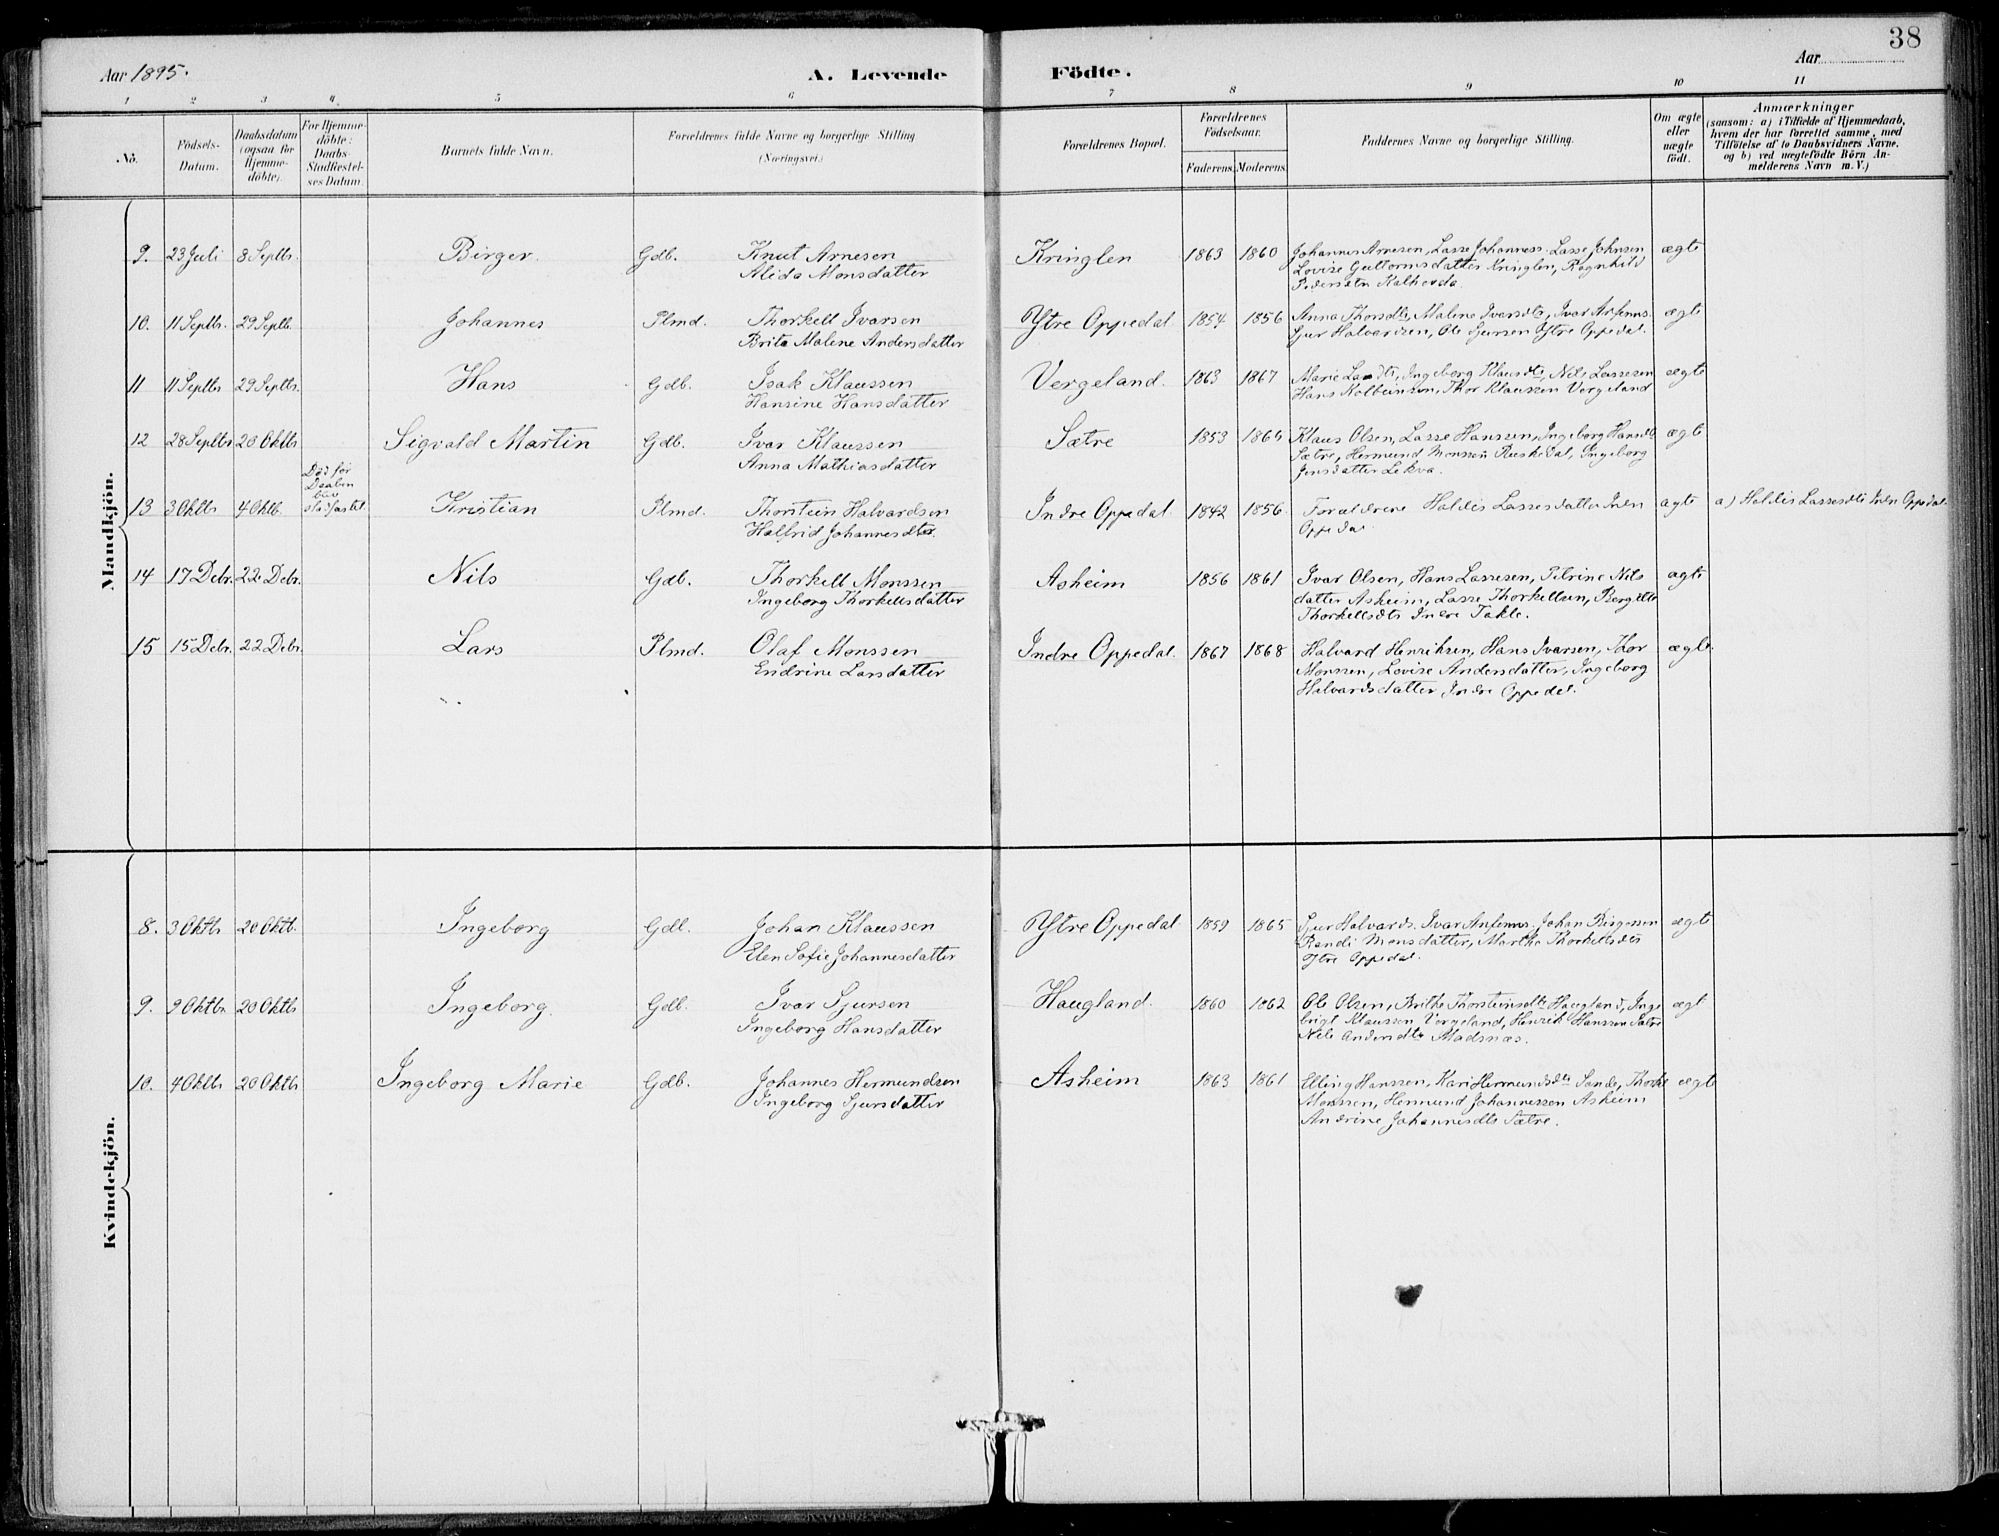 38
Aar 1895.
A. Levende Födte.
Aar
1 2 3 4 5 6 7 8 9 10 11
No.
Födsels-Datum.
Daabsdatum (ogsaa for Hjemme-döbte).
For Hjemme-döbte: Daabs-Stadfæstel-ses Datum.
Barnets fulde Navn.
Forældrenes fulde Navne og borgerlige Stilling
(Næringsvei.)
Forældrenes Bopæl.
Forældrenes Födselsaar.
Faderens. Moderens.
Faddernes Navne og borgerlige Stilling.
Om ægte eller uægte födt.
Anmærkninger
(saasom: a) i Tilfælde af Hjemmedaab,
hvem der har forrettet samme, med
Tilföielse af to Daabsvidners Navne.
og b) ved uægtefödte Börn An-
melderens Navn m. V.)
Mandkjön.
9. 23 Juli 8 Septbr. Birger. Gdb. Knut Arnesen
Alida Monsdatter
Kringlen 1863 1860 Johannes Arnesen, Lasse Johanness. Lasse Johnsen
Lovise Guttormsdatter Kringlen, Ragnhild
Pedersdtr Kalhovda.
ægte
10. 11 Septbr. 29 Septb. Johannes Plmd. Thorkell Ivarsen
Brita Malene Andersdatter
Ytre Oppedal 1854 1856 Anna Thorsdtr, Malene Ivarsdtr, Ivar Anfinns.
Sjur Halvardsen, Ole Sjursen Ytre Oppedal.
ægte
11 11 Septbr 29 Septbr. Hans Gdb. Isak Klaussen
Hansine Hansdatter
Vergeland. 1863 1867 Marie Dtr, Ingeborg Klausdtr, Nils Lassesen
Hans Kolbeinsen, Thor Klaussen Vergeland
ægte
12 28 Septbr 20 Oktb Sigvald Martin Gdb. Ivar Klaussen
Anna Mathiasdatter
Sætre 1853 Klaus Olsen, Lasse Hanssen, Ingeborg Hansdtr
Sætre, Hermund Monssen Ruskedal, Ingeborg
Jensdatter Lekva.
ægte
13 3 Oktb 4 Oktb. Død før
Daaben
blev
stadfæstet
Kristian Plmd. Thorstein Halvardsen
Halfrid Johannesdtr.
Indre Oppedal 1842 1856. Forældrene Haldis Lassesdatter Indre
Oppedal
ægte a) Haldis Lassesdtr Indre Oppedal
14 17 Debr. 22 Debr. Nils Gdb. Thorkell Monssen
Ingeborg Thorkellsdatter
Asheim 1856 1861 Ivar Olsen, Hans Lassesen, Petrine Nils
datter Asheim, Lasse Thorkellsen, Bergitte
Thorkellsdtr Indre Takle.
ægte
15 15 Debr. 22 Debr. Lars Plmd. Olaf Monssen
Endrine Larsdatter
Indre Oppedal. 1867 1868 Halvard Henriksen, Hans Ivarsen, Thor
Monssen, Lovise Andersdatter, Ingeborg
Halvardsdatter, Indre Oppedal.
ægte
Kvindekjön.
8. 3 Oktb 20 Oktb. Ingeborg Gdb. Johan Klaussen
Elen Sofie Johannesdatter
Ytre Oppedal 1859 1865 Sjur Halvards. Ivar Anfinns. Johan Birgesen
Randi Monsdatter, Marthe Thorkellsdtr
Ytre Oppedal.
ægt
9. 9 Oktbr 20 Oktb Ingeborg Gdb. Ivar Sjursen
Ingeborg Hansdatter
Haugland. 1860 1862 Ole Olsen, Brithe Thorsteinsdtr Haugland, Inge
brigt Klaussen Vergeland, Henrik Hanssen Sætre
Nele Andersdtr Madsnæs.
ægt
10. 4 Oktb 20 Oktb Ingeborg Marie Gdb. Johannes Hermundsen
Ingeborg Sjursdatter
Asheim 1863 1861 Elling Hanssen, Kari Hermundsdtr Sande, Thorke
Monssen, Hermund Johannessen Asheim
Andrine Johannesdtr Sætre.
ægt